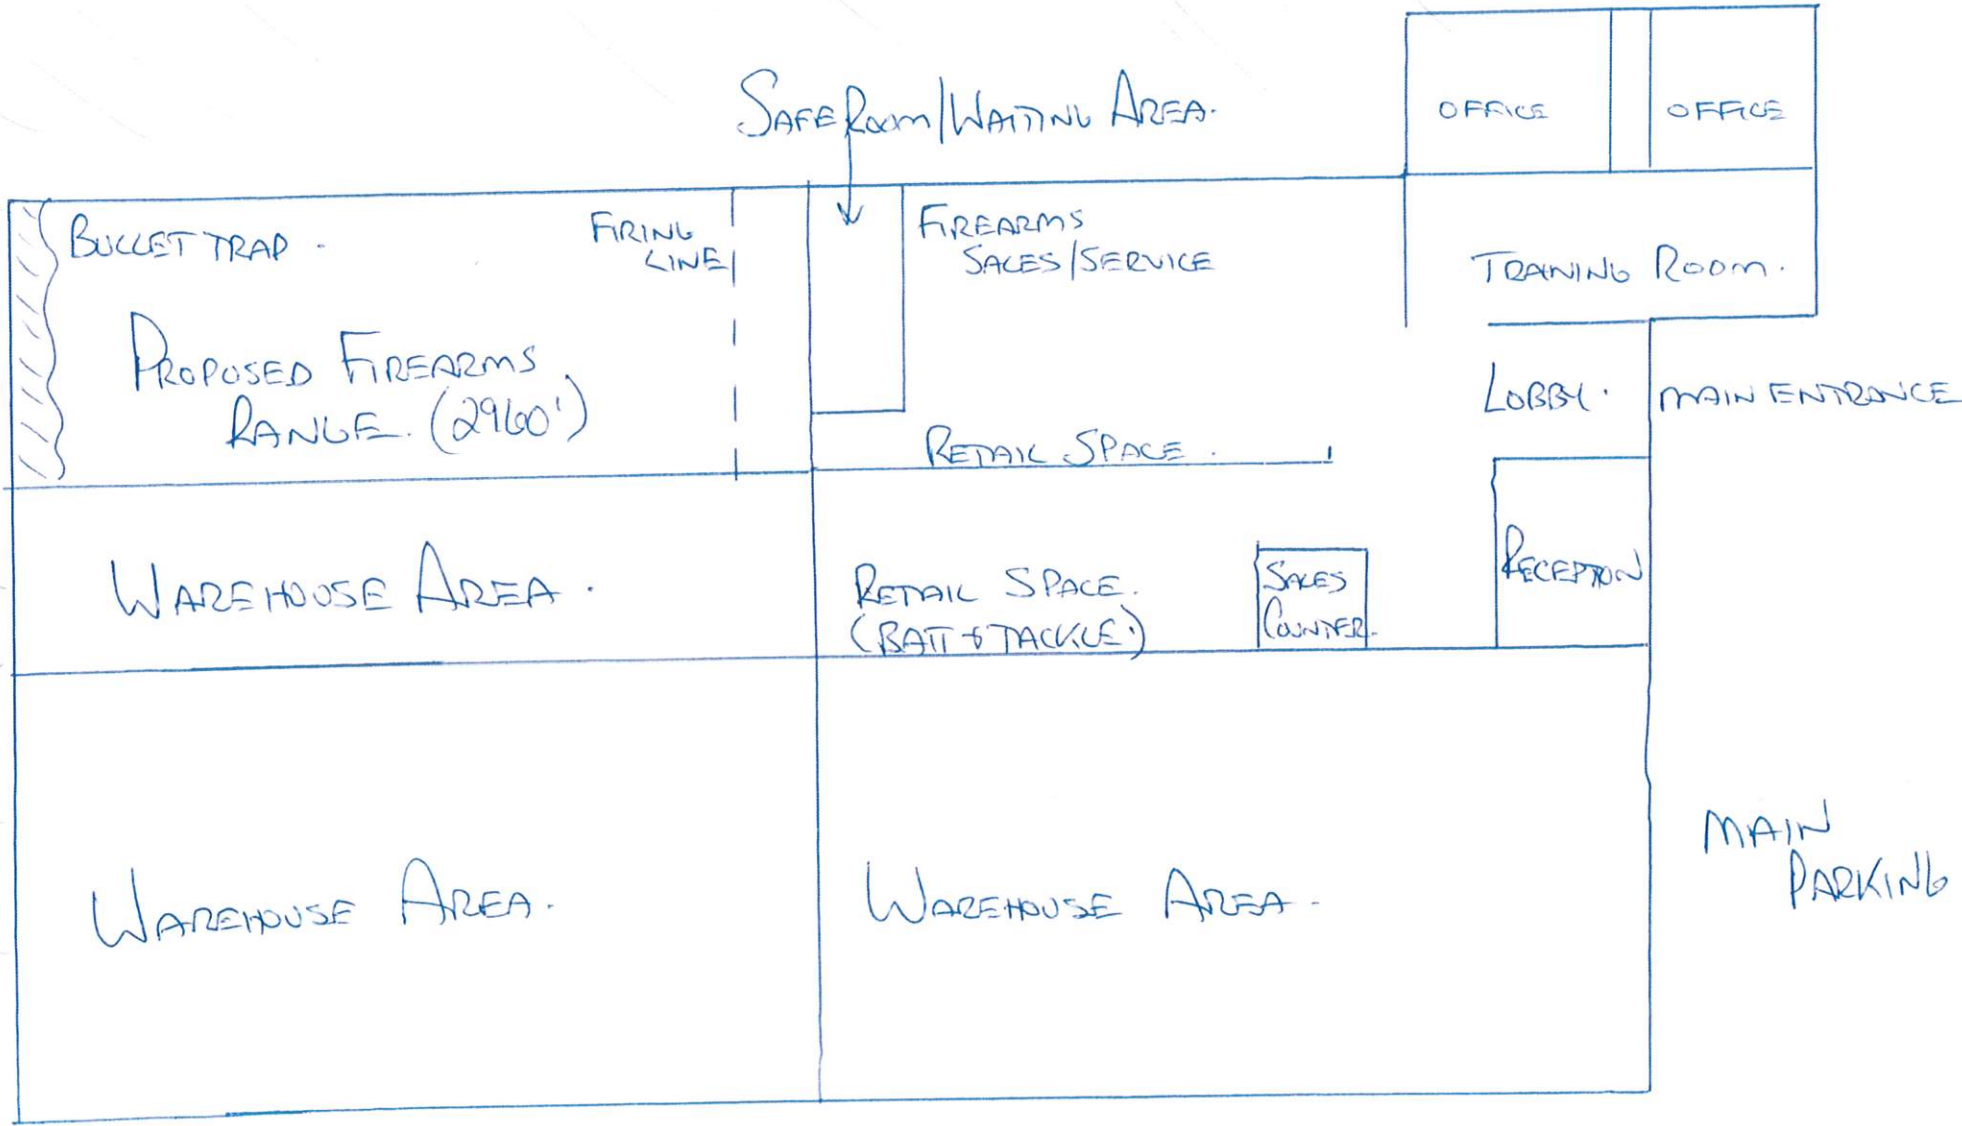 SAFE ROOM/WAITING AREA.
OFFICE
OFFICE
BULLET TRAP.
FIRING
LINE
FIREARMS
SALES/SERVICE
TRAINING ROOM.
PROPOSED FIREARMS
RANGE. (2960')
LOBBY.
MAIN ENTRANCE
RETAIL SPACE.
WAREHOUSE AREA.
RETAIL SPACE.
(BAIT & TACKLE.)
SALES
COUNTER.
RECEPTION
WAREHOUSE AREA.
WAREHOUSE AREA.
MAIN
PARKING